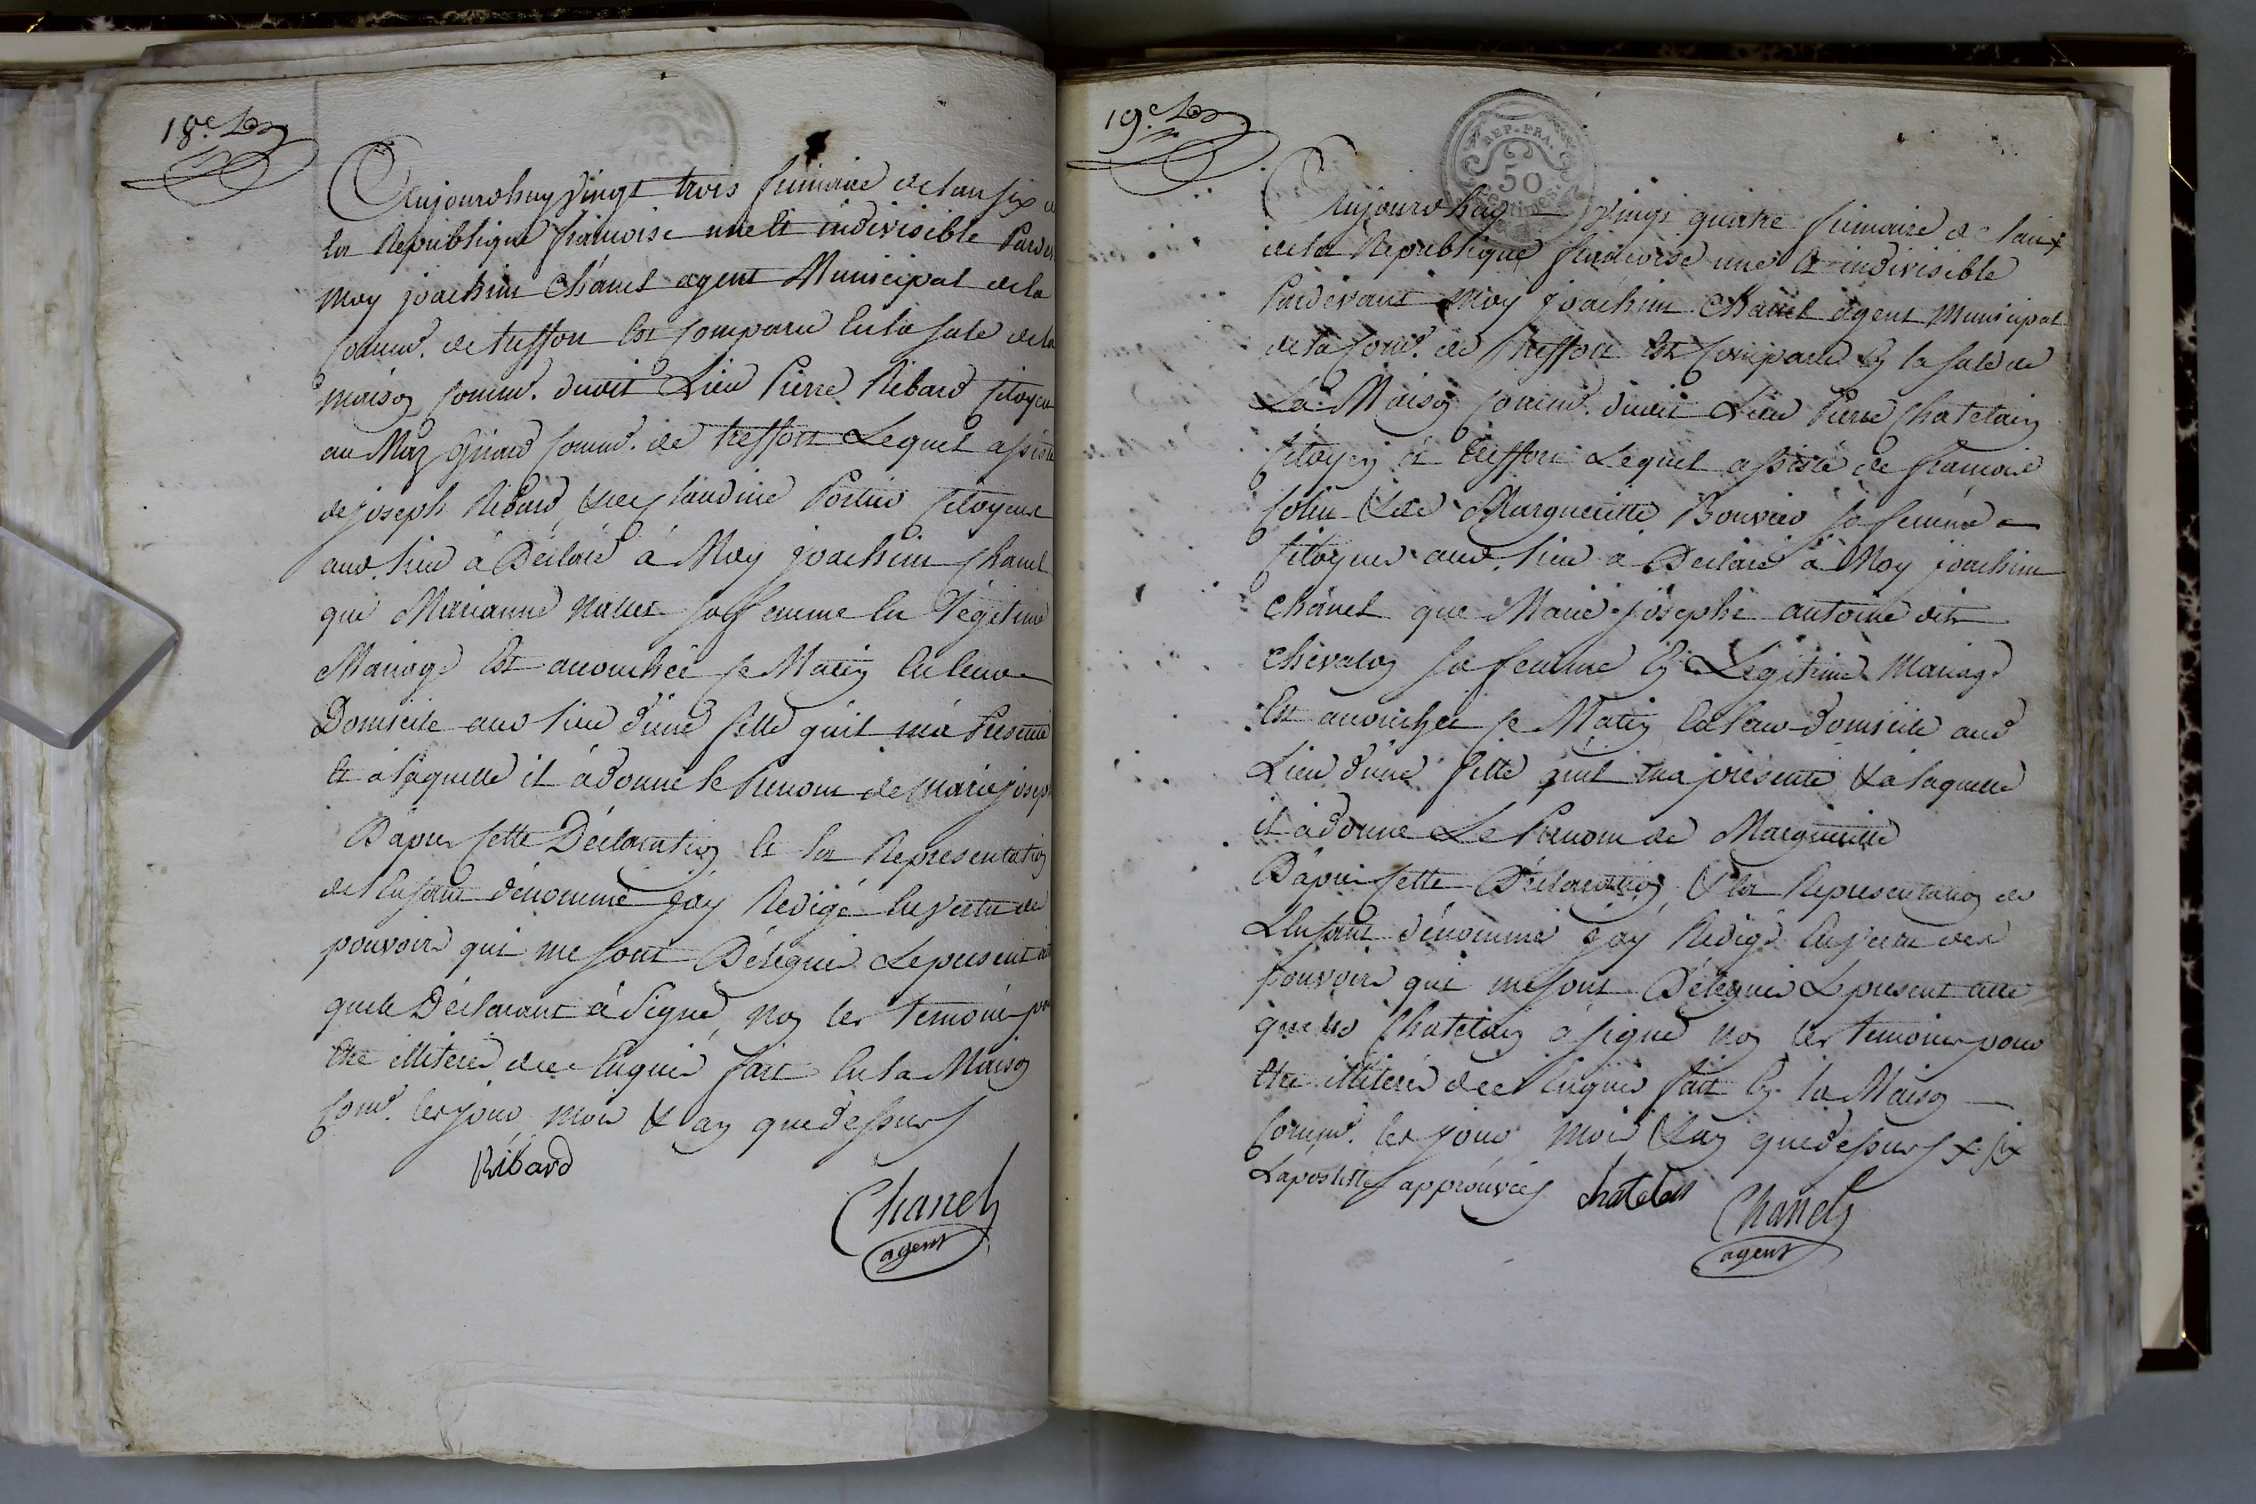 18e
Aujourdhuy vingt trois frimaire de lan six de
la Republique francoise une et indivisible Pardev
Moy joachim Chanel agent Municipal de la
Comm.e de treffort Est Comparu En la sale de la
maison Comm.e dudit Lieu Pierre Ribard Citoyen
au Maz Comm.e de treffort Lequel assisté
de joseph Ribard & de Claudine Citoyens
aud. lieu à Déclaré à Moy joachim Chanel
que Marianne sa femme En Légitime
Mariage Est accouchée ce Matin En leur
Domicile aud lieu d'une fille quil m'à Presenté
et a laquelle il à donné le Prenom de Marie joseph
D'après Cette Déclaration et la Representation
de l'Enfant dénommé j'ay Redigé En vertu des
pouvoirs qui me sont Délégués Le present acte
que le Déclarant à Signé, non les temoins pour
Etre illiterés de ce Enquis fait En la Maison
Com.e les jour, mois & an que dessus
Ribard
Chanel
agent
19e
REP. FRA.
50
centimes
Aujourdhuy vingt quatre frimaire de lan x
de la Republique francoise une et indivisible
Pardevant Moy joachim Chanel agent Municipal
de la Com.e de Treffort Est Comparu En la sale de
La Maison Comm.e dudit Lieu Pierre Chatelain
Citoyen à treffort Lequel assisté de francois
Colin & de Margueritte Bouvier sa femme
Citoyens aud. lieu à Déclaré à Moy joachim
Chanel que Marie josephe antoine dit
chevalon sa femme En Légitime Mariage
Est accouchée ce Matin En leur Domicile aud
Lieu d'une fille quil ma présenté & a laquelle
il à donné Le Prenom de Margueritte
D'après Cette Déclaration, & la Representation de
L'Enfant dénommé j'ay Redigé En vertu des
pouvoirs qui me sont Délégués Le present acte
que led Chatelain à signé non les temoins pour
Etre illiterés de ce Enquis fait En la Maison
Comm.e les jour, mois & an que dessus x six
Lapostille approuvée chatelain
Chanel
agent